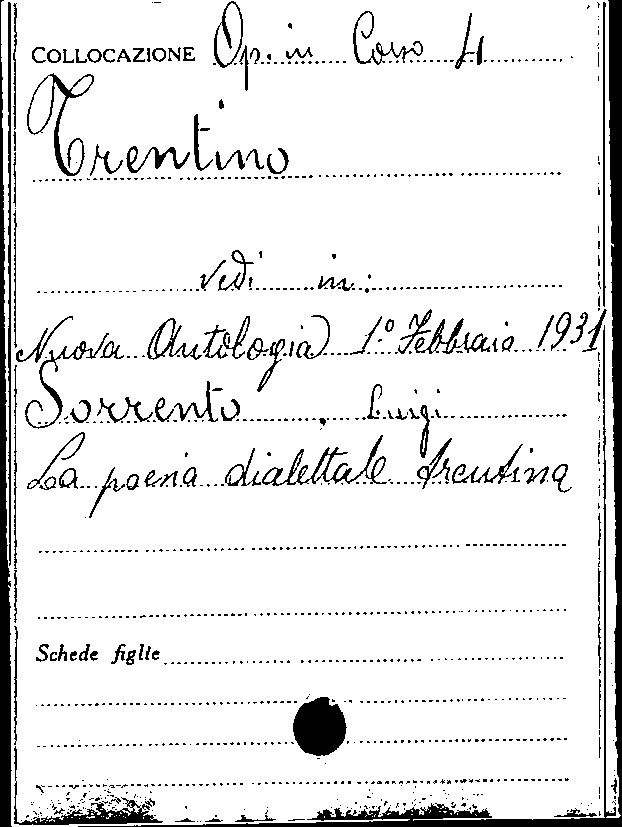 COLLOCAZIONE Op. in Corso 4
Trentino
vedi in:
Nuova Antologia 1.º Febbraio 1931
Sorrento, Luigi
La poesia dialettale trentina
Schede figlie